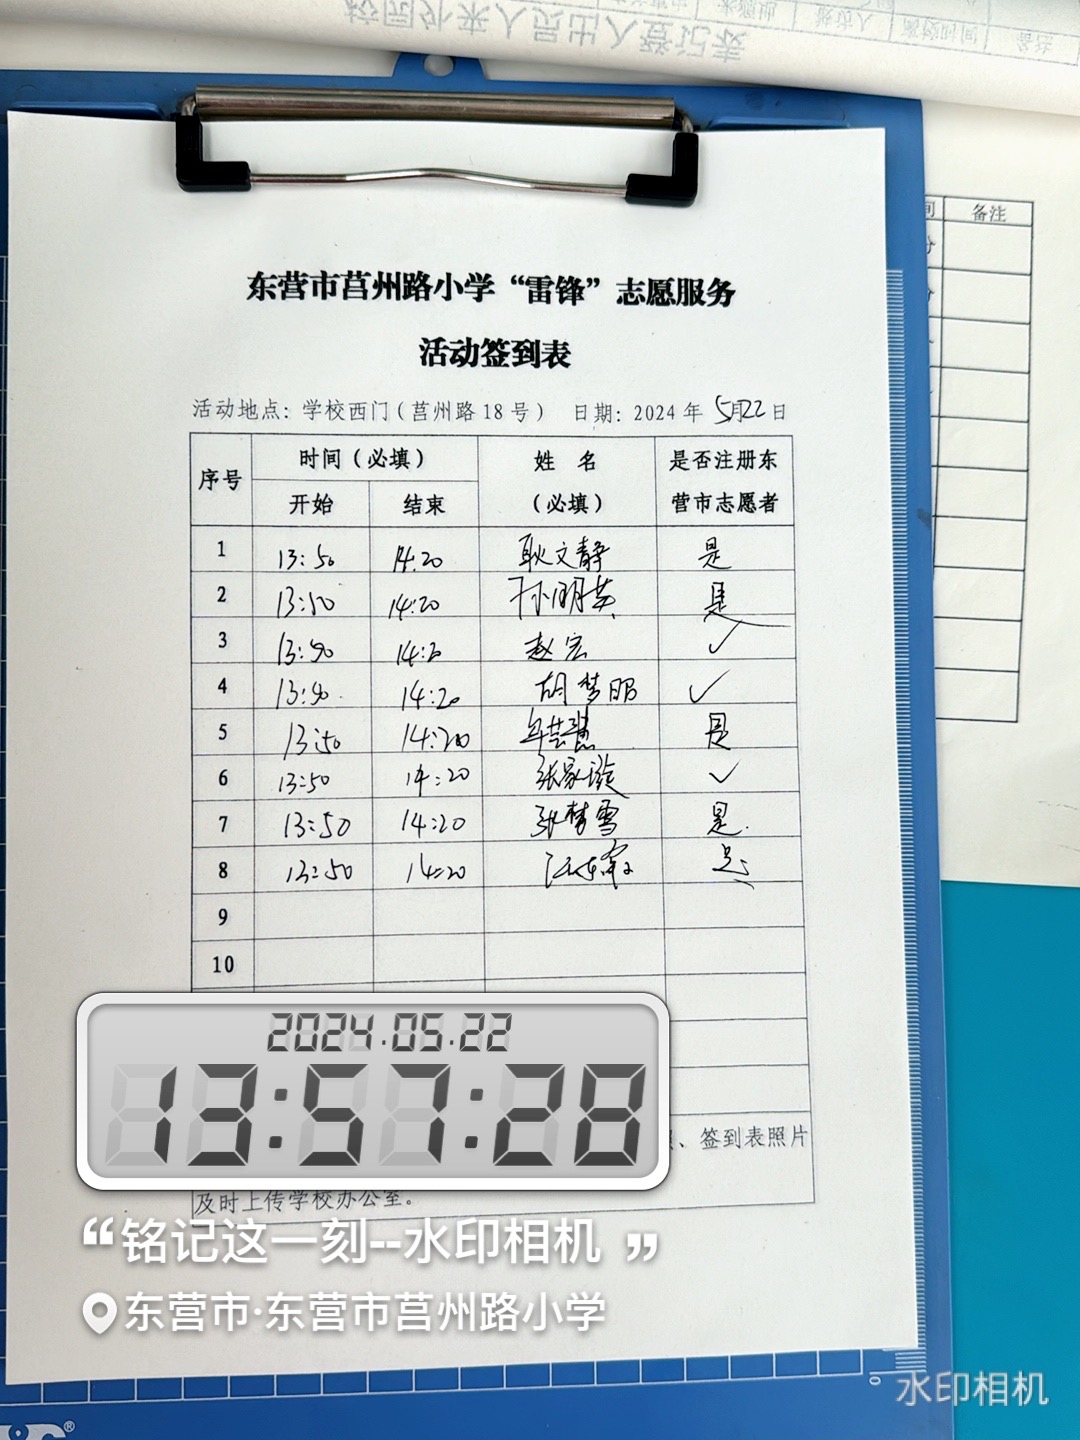 校园外来人员出入登记表
备注
东营市莒州路小学“雷锋”志愿服务
活动签到表
活动地点：学校西门（莒州路18号） 日期：2024年5月22日
序号 时间（必填） 姓 名（必填） 是否注册东营市志愿者
开始 结束
1 13:50 14:20 耿文静 是
2 13:50 14:20 孙明英 是
3 13:50 14:20 赵宏 ✓
4 13:50 14:20 胡梦 ✓
5 13:50 14:20 是
6 13:50 14:20 张家璇 ✓
7 13:50 14:20 张梦雪 是
8 13:50 14:20 是
9
10
、签到表照片
及时上传学校办公室。
2024.05.22
13:57:28
“铭记这一刻--水印相机”
东营市·东营市莒州路小学
水印相机